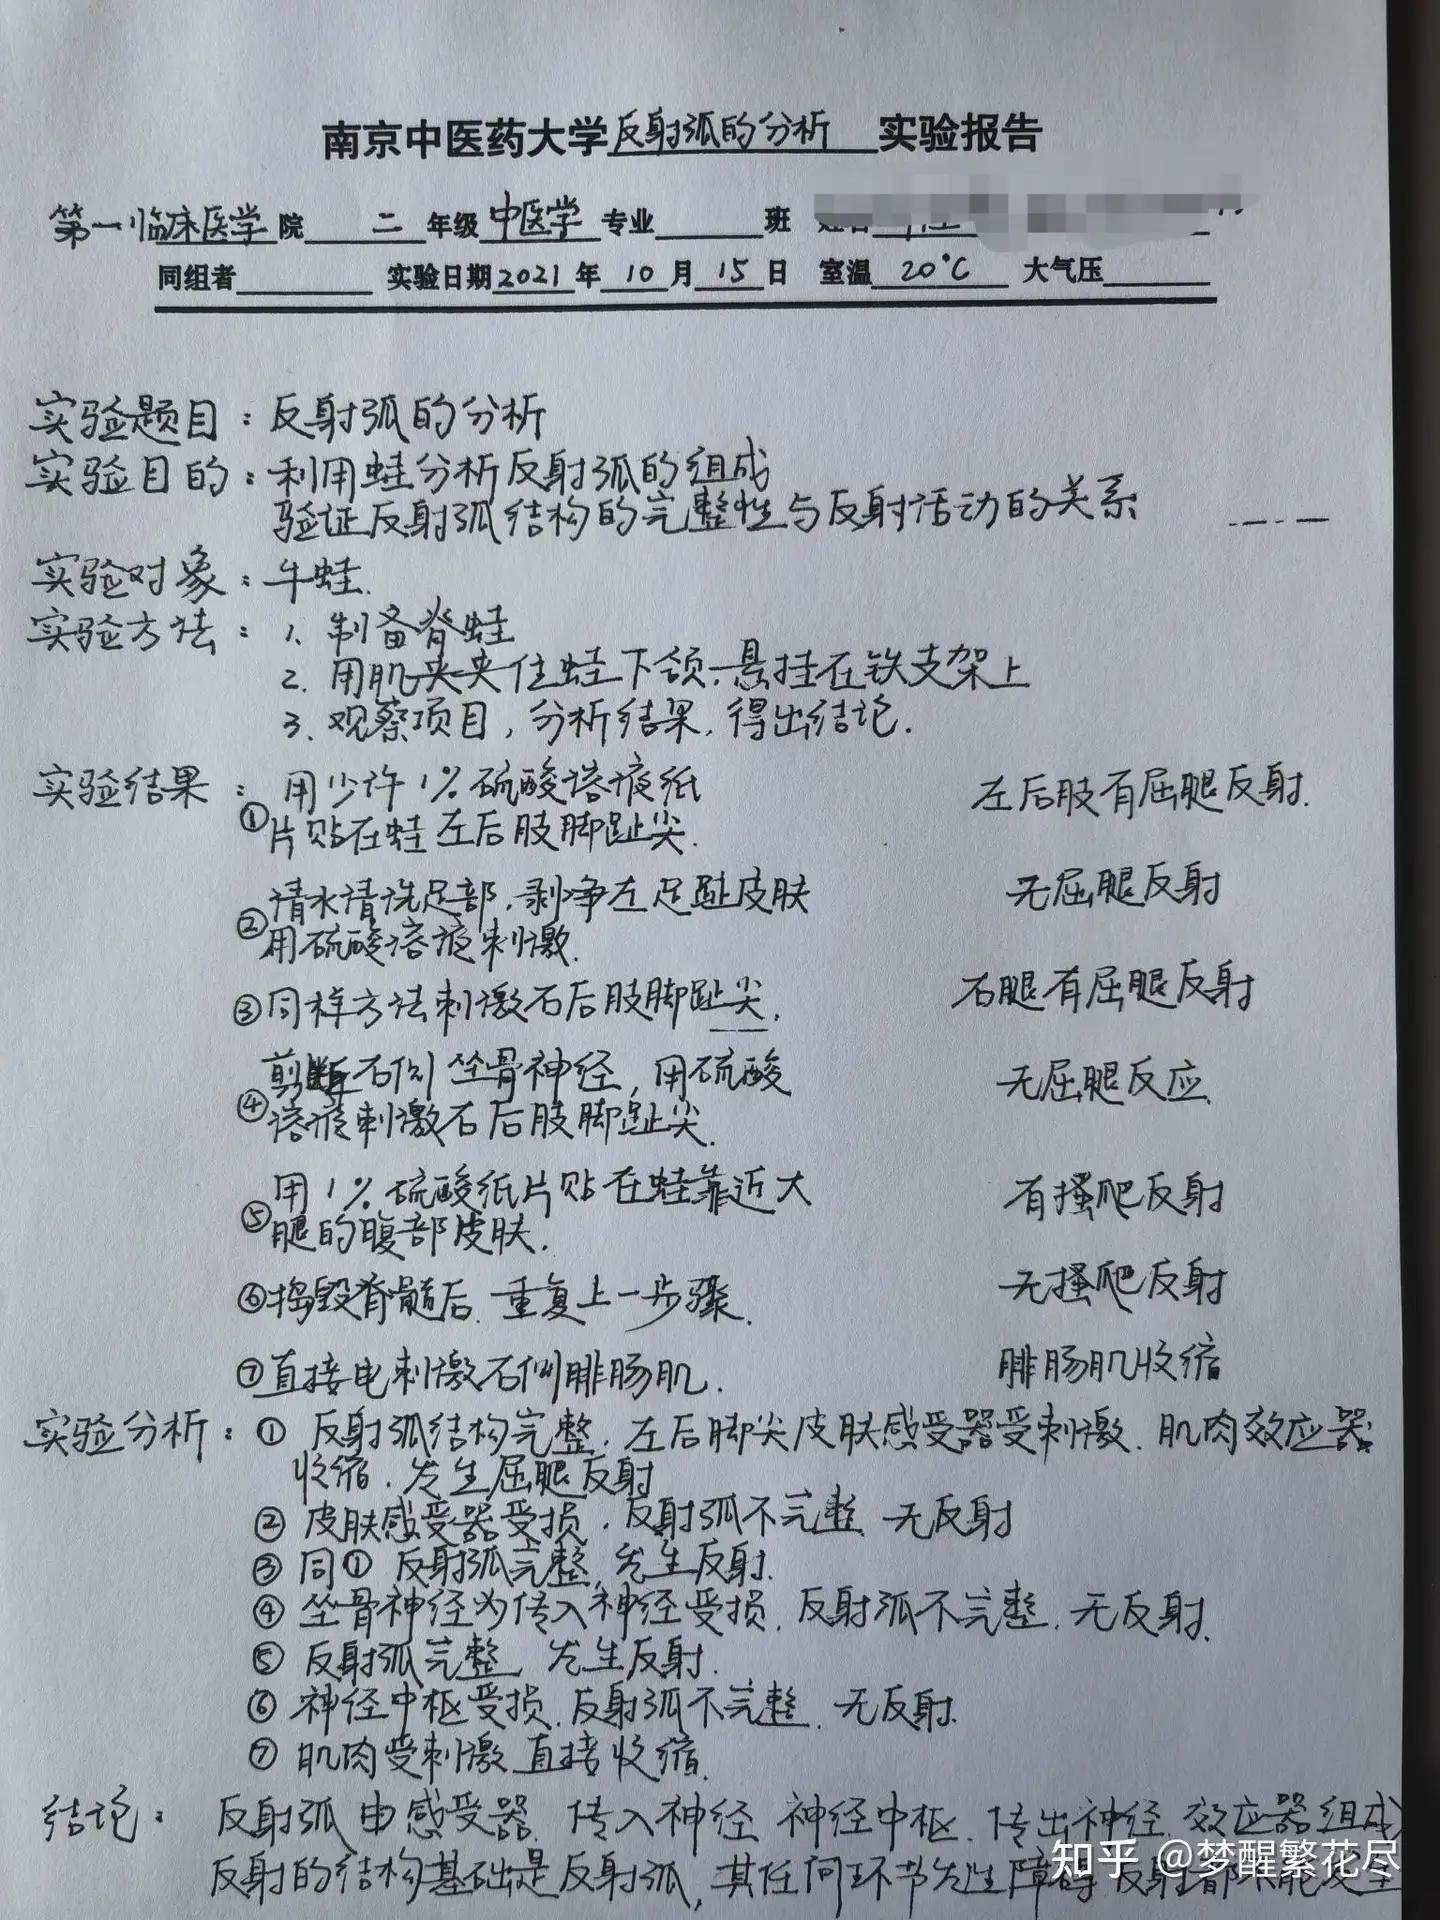 南京中医药大学反射弧的分析 实验报告
第一临床医学院 二 年级 中医学 专业 班
同组者 实验日期 2021 年 10 月 15 日 室温 20℃ 大气压
实验题目：反射弧的分析
实验目的：利用蛙分析反射弧的组成
验证反射弧结构的完整性与反射活动的关系
实验对象：牛蛙.
实验方法：1. 制备脊蛙
2. 用肌夹夹住蛙下颌,悬挂在铁支架上
3. 观察项目,分析结果,得出结论.
实验结果：① 用少许1%硫酸溶液纸 左后肢有屈腿反射.
片贴在蛙左后肢脚趾尖.
② 清水清洗足部,剥净左足趾皮肤 无屈腿反射
用硫酸溶液刺激.
③同样方法刺激右后肢脚趾尖. 右腿有屈腿反射
④ 剪断右侧坐骨神经,用硫酸 无屈腿反应.
溶液刺激右后肢脚趾尖.
⑤ 用1%硫酸纸片贴在蛙靠近大 有搔爬反射
腿的腹部皮肤.
⑥捣毁脊髓后.重复上一步骤. 无搔爬反射
⑦直接电刺激右侧腓肠肌. 腓肠肌收缩
实验分析：① 反射弧结构完整.左后脚尖皮肤感受器受刺激.肌肉效应器
收缩.发生屈腿反射
② 皮肤感受器受损.反射弧不完整.无反射
③ 同① 反射弧完整,发生反射.
④ 坐骨神经为传入神经受损.反射弧不完整.无反射.
⑤ 反射弧完整 发生反射.
⑥ 神经中枢受损.反射弧不完整.无反射.
⑦ 肌肉受刺激直接收缩.
结论：反射弧由感受器.传入神经 神经中枢.传出神经.效应器组成
反射的结构基础是反射弧,其任何环节发生障碍反射都不能发生
知乎 @梦醒繁花尽